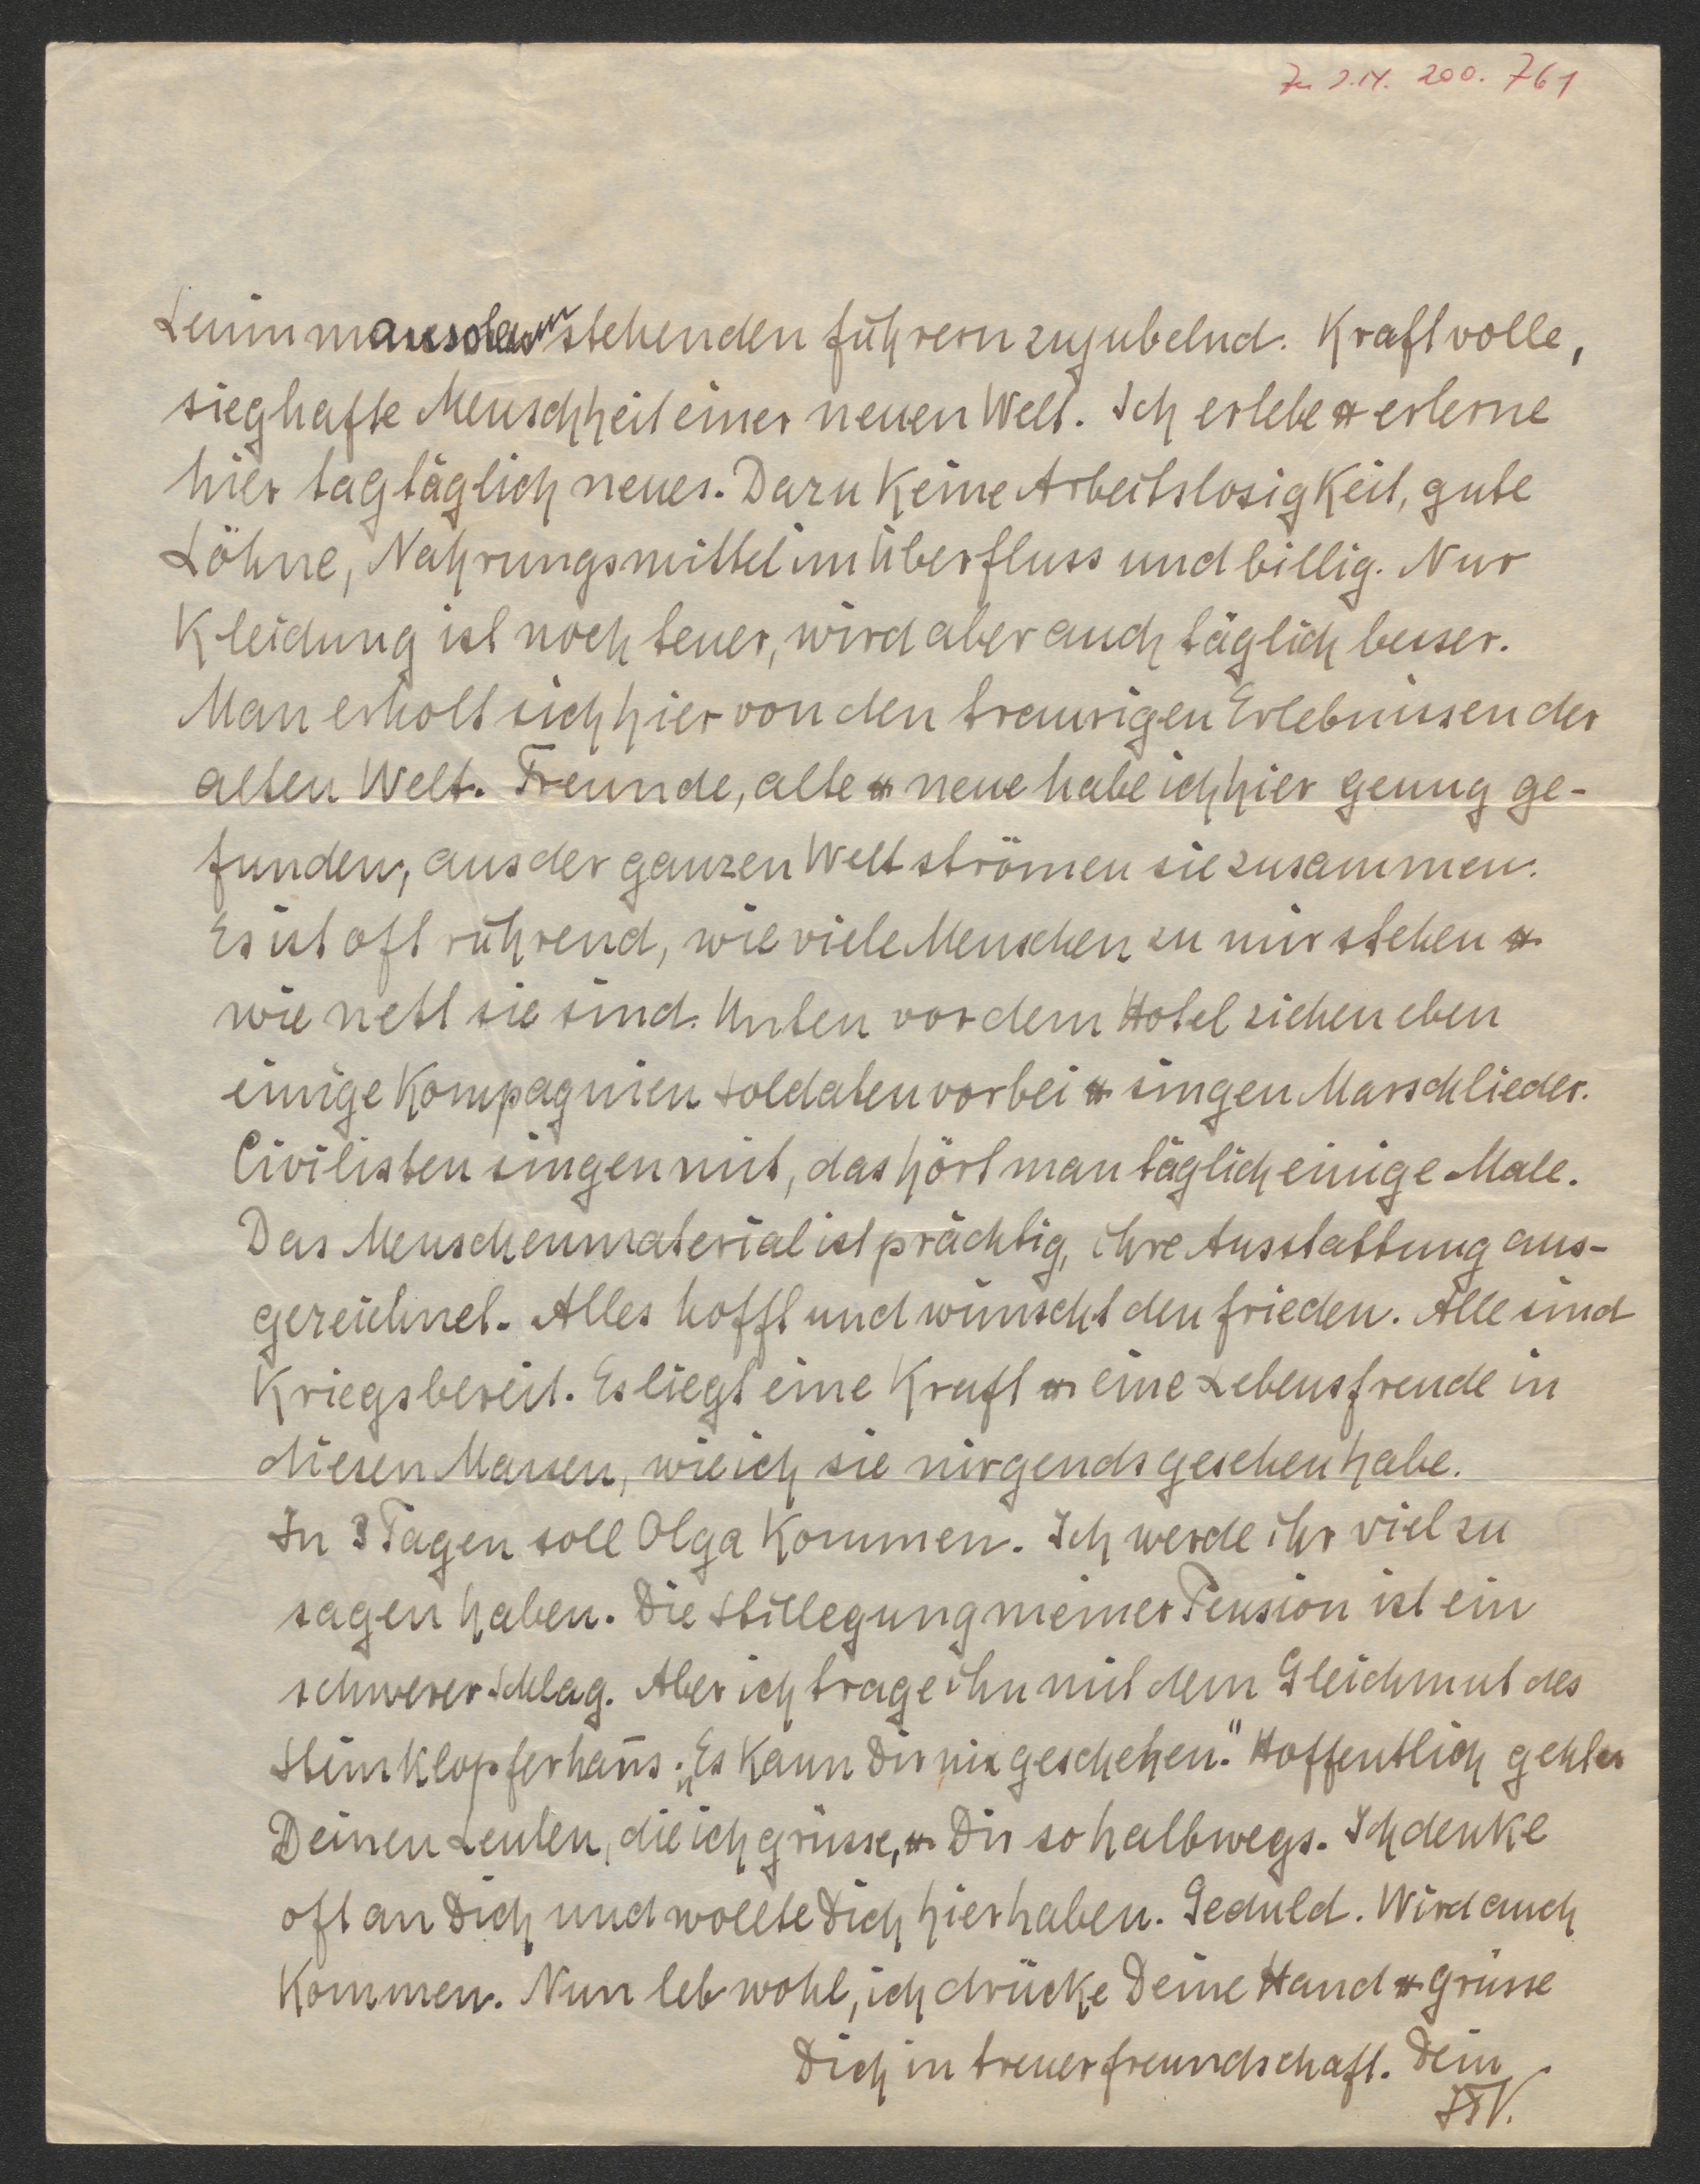 200. 761
Leninmausoleum stehenden Führern zujubelnd. Kraftvolle,
sieghafte Menschheit einer neuen Welt. Ich erlebe u. erlerne
hier tagtäglich neues. Dazu keine Arbeitslosigkeit, gute
Löhne, Nahrungsmittel im Überfluss und billig. Nur
Kleidung ist noch teuer, wird aber auch täglich besser.
Man erholt sich hier von den traurigen Erlebnissen der
alten Welt. Freunde, alte u. neue habe ich hier genug ge-
funden, aus der ganzen Welt strömen sie zusammen.
Es ist oft rührend, wie viele Menschen zu mir stehen u.
wie nett sie sind. Unten vor dem Hotel ziehen eben
einige Kompagnien Soldaten vorbei u. singen Marschlieder.
Civilisten singen mit, das hört man täglich einige Male.
Das Menschenmaterial ist prächtig, ihre Ausstattung aus-
gezeichnet. Alles hofft und wünscht den Frieden. Alle sind
Kriegsbereit. Es liegt eine Kraft u. eine Lebensfreude in
diesen Massen, wie ich sie nirgends gesehen habe.
In 3 Tagen soll Olga kommen. Ich werde ihr viel zu
sagen haben. Die Stillegung meiner Pension ist ein
schwerer Schlag. Aber ich trage ihn mit dem Gleichmut des
Steinklopferhanns: „Es kann Dir nix geschehen." Hoffentlich geht es
Deinen Leuten, die ich grüsse, u. Dir so halbwegs. Ich denke
oft an Dich und wollte Dich hier haben. Geduld. Wird auch
kommen. Nun leb wohl, ich drücke Deine Hand u. grüsse
Dich in treuer Freundschaft. Dein